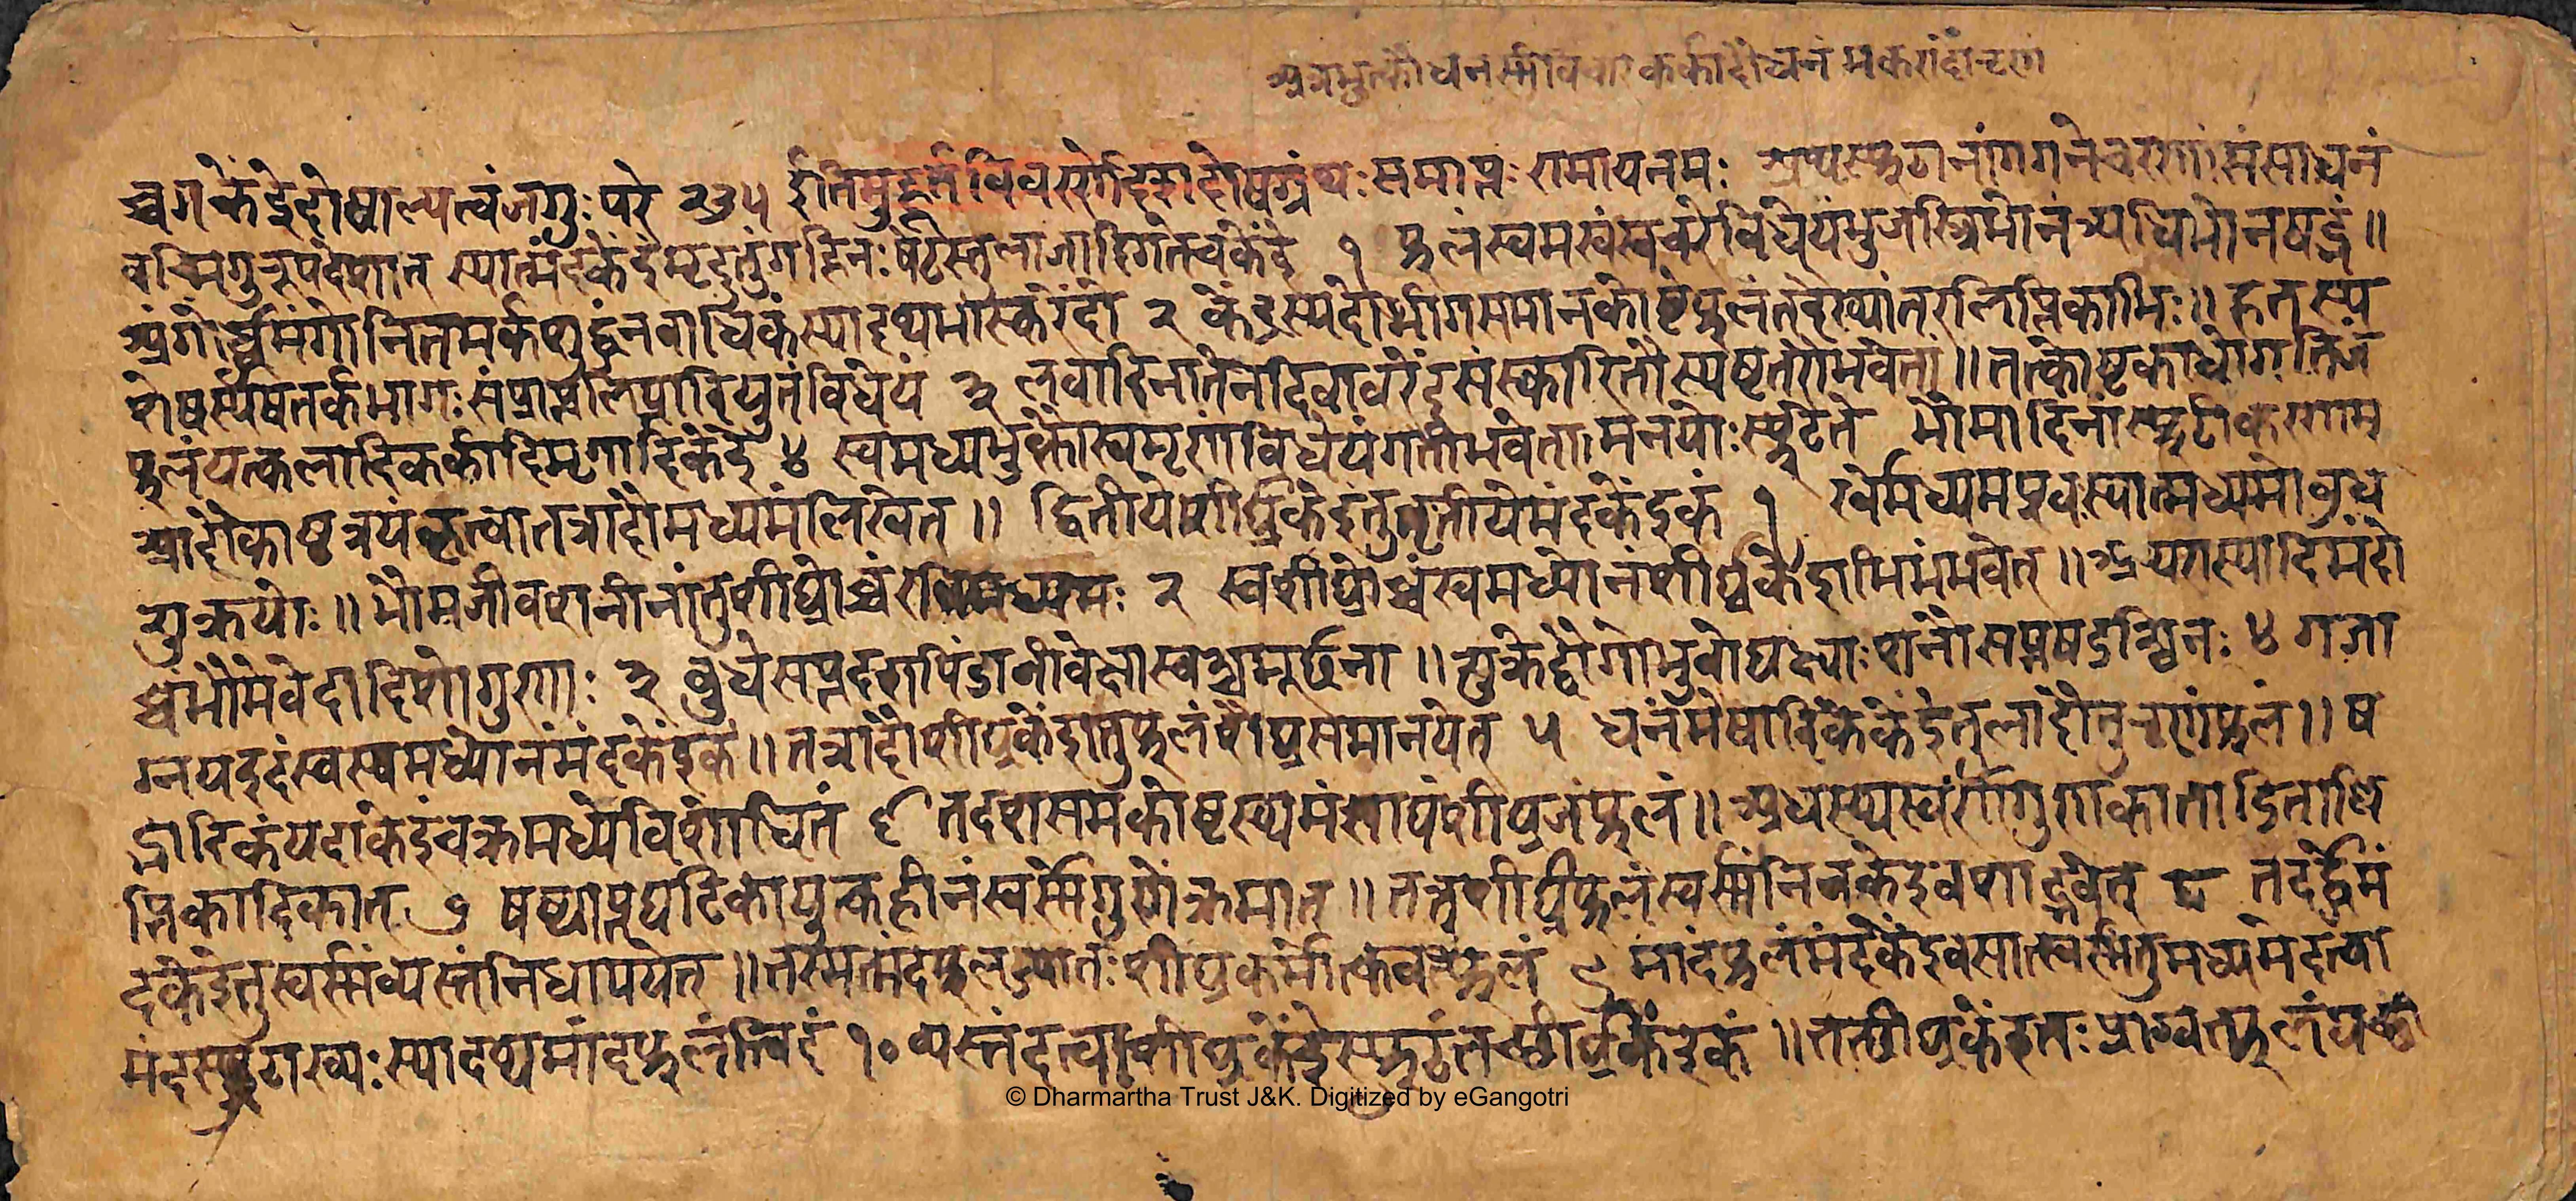 धनर्मावि कर्कादौ धनं मकरादौ ऋणं
च्चगकेंद्रेदोषाल्पत्वंजगुःपरे २३५ ईतिमुहूर्त्त दोषग्रंथःसमाप्तः रामायनमः अथस्फुटानांगगनेचराणांसंसाधनं
वच्मिगुरूपदेशात् स्यान्मंदकेंद्रंमृदुतुंगहीनःषेटस्तुलाजादिगतंस्वकेंद्रं १ फलंस्वमस्वंस्वचरेविधेयंभुजस्त्रिभोनंत्र्यधिभोनषड्भं॥
अंगोर्ध्वमंगोनितमर्कशुद्धंनवाधिकंस्यादथभास्करेंदो २ केंद्रस्यदोर्भागसमानकोष्टंफलंतदैख्यांतरलिप्तिकाभिः॥हतस्य
शेषस्यषतर्कभागःसंप्राप्तलिप्तादियुतंविधेयं ३ लवादिनातेनदिवाकरेंदूसंस्कारितौस्पष्टतरोभवेतां॥तत्कोष्टकाधोगतिजं
फलंयत्कलादिकर्कादिमृगादिकेंद्रे ४ स्वमध्यभुक्तौस्वमृणंविधेयंगतीभवेतामनयोःस्फुटेते भौमादिनांस्फुटीकरणम्
आदौकोष्टत्रयंकृत्वातत्रादौमध्यमंलिखेत्॥ द्वितीयेशीघ्रकेंद्रंतुतृतीयेमंदकेंद्रकं १ रवेर्मध्यमएवस्यान्मध्यमोबुध
शुक्रयोः॥भौमजीवशनीनांतुशीघ्रोच्चंरविमध्यमः २ स्वशीघ्रोच्चंस्वमध्योनंशीघ्रकेंद्राभिधंभवेत्॥अथरास्यादिमंदो
च्चंभौमेवेदादिशोगुणाः ३ बुधेसप्तदशपिंडाजीवेक्षास्वक्ष्यमूर्छना॥शुक्रेद्वौगोभुवोघक्ष्याःशनौसप्तषडग्निनः ४ गजा
ग्नयइदंस्वस्वमध्योनंमंदकेंद्रकं॥तत्रादौशीघ्रकेंद्रात्तुफलंशीघ्रसमानयेत् ५ धनंमेषादिकेकेंद्रेतुलादौतुऋणंफलं॥ष
ड्भादिकंयदाकेंद्रंचक्रमध्येविशोधितं ६ तदंशसमकोष्टस्थमंशाघंशीघ्रजंफलं॥अधस्थस्वर्णगुणकात्ताडिताल्लि
प्तिकादिकात् ७ षष्ठ्याप्तघटिकायुक्तहीनंस्वर्णगुणेक्रमात्॥तत्रशीघ्रफलंस्वर्णंनिजकेंद्रवशाद्भवेत् ८ तदर्द्धमं
दकेंद्रेतुस्वर्णंव्यस्तंनिधापयेत्॥तस्मान्मंदफलं शीघ्रकर्मो फलं ९ मांदंफलंमंदकेंद्रवसात्स्वर्णंतुमध्यमेदत्वा
मंदस्फुटाख्यःस्यादथमांदफलंत्विदं १० व्यस्तंदत्वाशीघ्रकेंद्रेस्फुटंतच्छीघ्रकेंद्रकं॥तच्छीघ्रकेंद्रतःप्राग्वत्फलं
© Dharmartha Trust J&K. Digitized by eGangotri